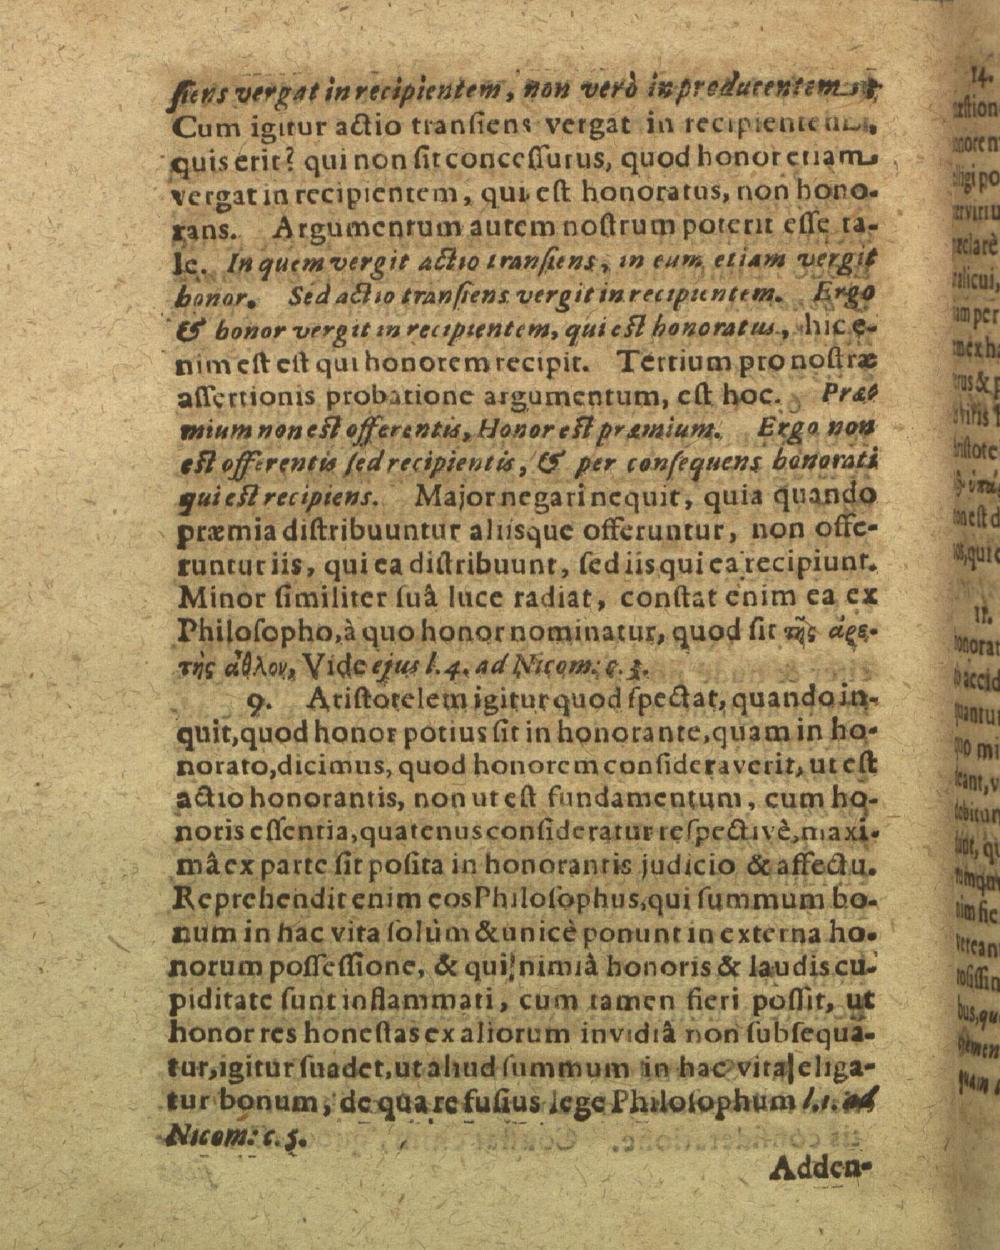 ſiens vergat in recipientem, non verò in producentem.
Cum igitur actio tranſiens vergat in recipientem,
quis erit? qui non ſit conceſſurus, quod honor etiam
vergat in recipientem, qui eſt honoratus, non hono-
rans. Argumentum autem noſtrum poterit eſſe ta-
le. In quem vergit actio tranſiens, in eum etiam vergit
honor. Sed actio tranſiens vergit in recipientem. Ergo
& honor vergit in recipientem, qui eſt honoratus, hic e-
nim eſt eſt qui honorem recipit. Tertium pro noſtræ
aſſertionis probatione argumentum, eſt hoc. Præ-
mium non eſt offerentis, Honor eſt præmium. Ergo non
eſt offerentis ſed recipientis, & per conſequens honorati
qui eſt recipiens. Major negari nequit, quia quando
præmia diſtribuuntur aliisque offeruntur, non offe-
runtur iis, qui ea diſtribuunt, ſed iis qui ea recipiunt.
Minor ſimiliter ſuâ luce radiat, conſtat enim ea ex
Philoſopho, à quo honor nominatur, quod ſit τῆς ἀρε-
τῆς ἆθλον, Vide ejus l. 4. ad Nicom: c. 3.
9. Ariſtotelem igitur quod ſpectat, quando in-
quit, quod honor potius ſit in honorante, quam in ho-
norato, dicimus, quod honorem conſideraverit, ut eſt
actio honorantis, non ut eſt fundamentum, cum ho-
noris eſſentia, quatenus conſideratur reſpectivè, maxi-
mâ ex parte ſit poſita in honorantis judicio & affectu.
Reprehendit enim eos Philoſophus, qui ſummum bo-
num in hac vita ſolùm & unicè ponunt in externa ho-
norum poſſeſſione, & qui nimiâ honoris & laudis cu-
piditate ſunt inflammati, cum tamen fieri poſſit, ut
honor res honeſtas ex aliorum invidiâ non ſubſequa-
tur, igitur ſuadet, ut aliud ſummum in hac vita eliga-
tur bonum, de qua re fuſius lege Philoſophum l. 1. ad
Nicom: c. 5.
Adden-